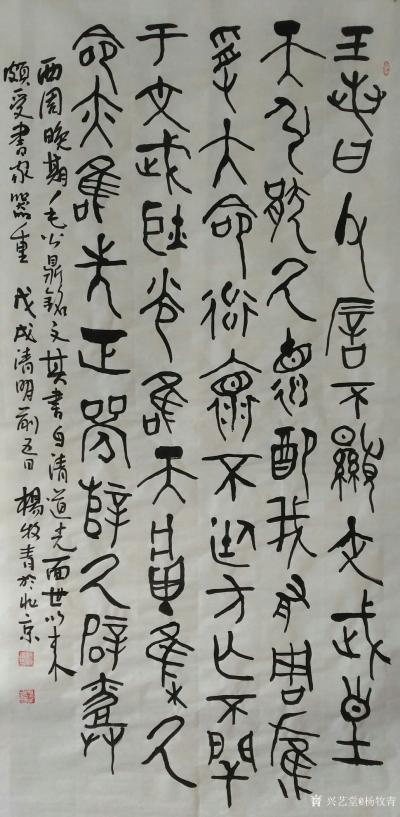 王若曰父厝不顯文武皇
天引猒氒德配我有周膺
受大命衒襄不廷方亡不閈
于文武耿光唯天將集氒
命亦唯先正襄辥氒辟
西周晚期毛公鼎銘文其書自清道光面世以來
頗受書家器重 戊戌清明前五日 楊牧青於北京
兴艺堂@杨牧青